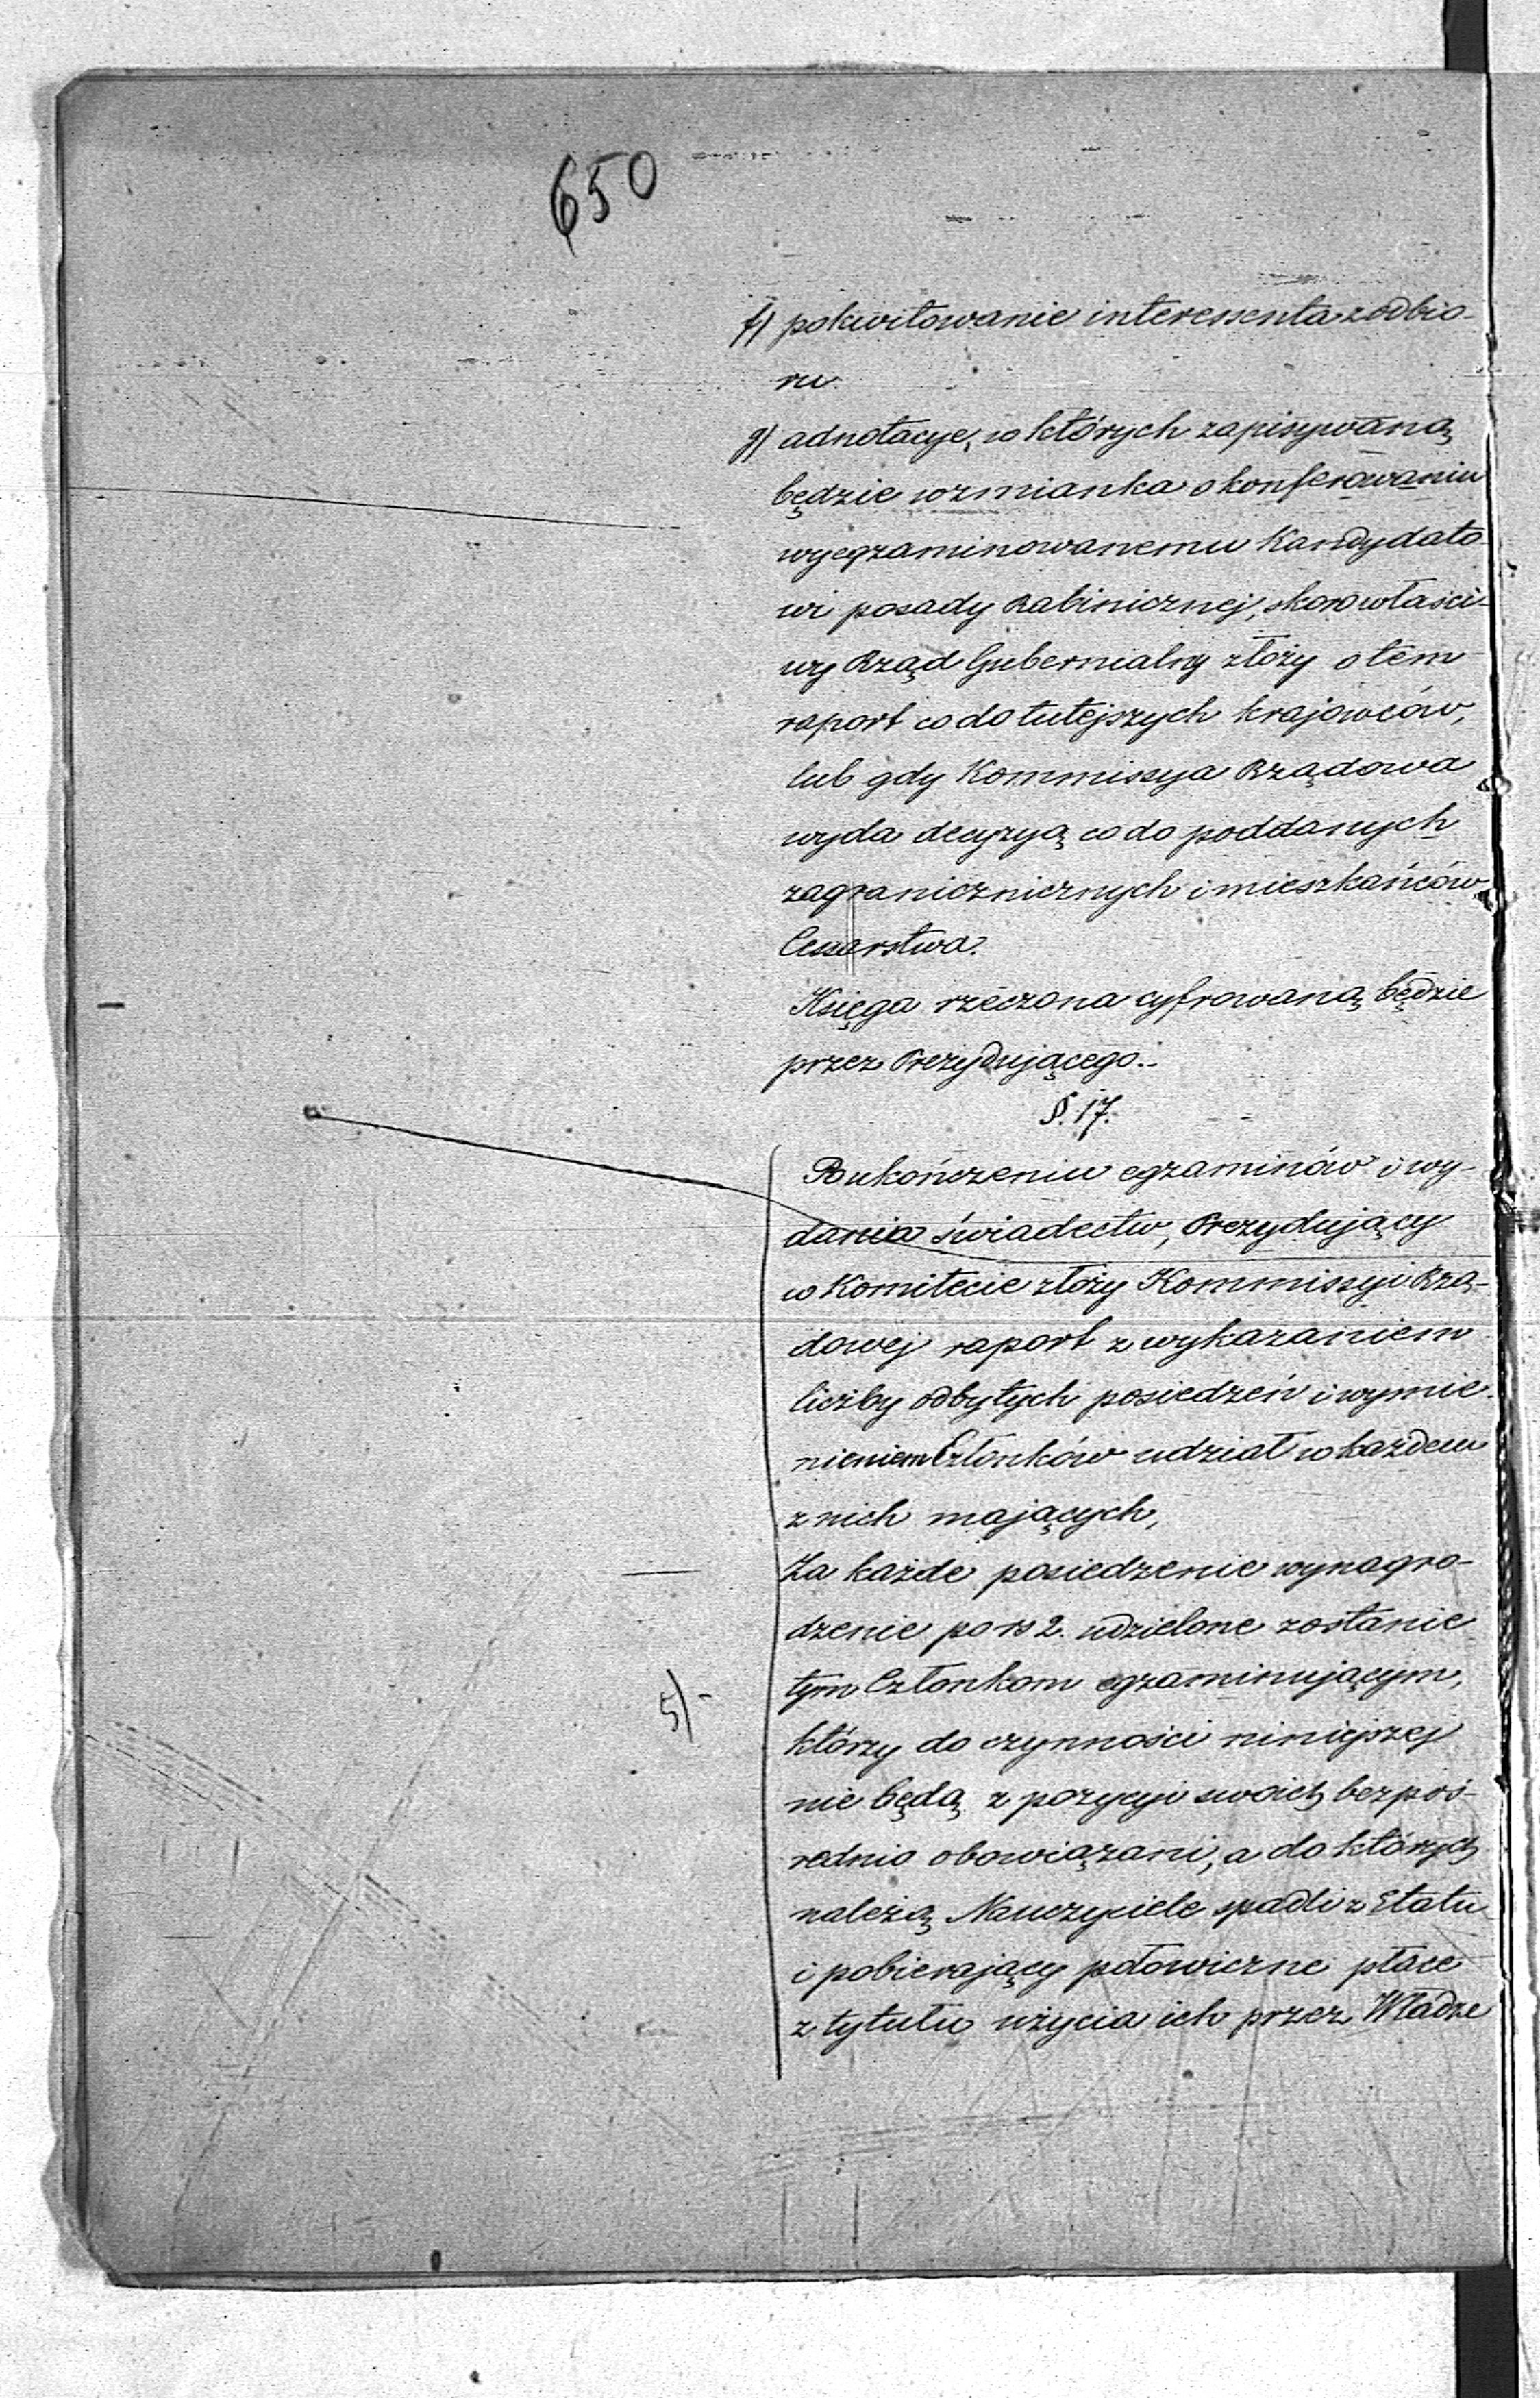 650
f) pokwitowanie interessenta z odbio-
ru.
g) adnotacye, w których zapisywaną
będzie wzmianka o konferowaniu
wyegzaminowanemu Kandydato
wi posady Rabinicznej, skoro właści-
wy Rząd Gubernialny złoży o tem
raport co do tutejszych krajowców,
lub gdy Kommissya Rządowa
wyda decyzyą co do poddanych
zagranicznicznych i mieszkańców
Cessarstwa.
Księga rzeczona cyfrowaną będzie
przez Prezydującego.-
§. 17.
Po ukończeniu egzaminów i wy-
dania świadectw, Prezydujący
w Komitecie złoży Kommissyi Rzą-
dowej raport z wykazaniem
liczby odbytych posiedzeń i wymie
nieniem Członków udział w każdem
z nich mających,
Za każde posiedzenie wynagro-
dzenie po rs 2. udzielone zostanie
tym Członkom egzaminującym,
5)-
którzy do czynności niniejszej
nie będą z pozycyi swoich bezpoś-
rednio obowiązani, a do których
należą Nauczyciele spadli z Etatu
i pobierający połowiczne płace
z tytułu użycia ich przez Władze